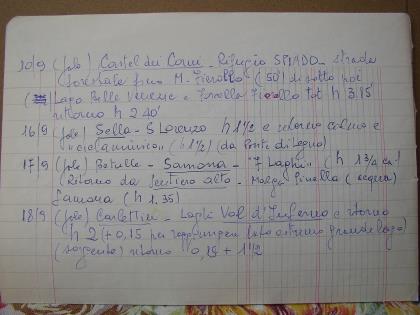 10/9 (solo) Castel dei Corni - Rifugio SPIADO - strada
forestale fino M. Fierollo (50') disotto poi
Lago Belle Venexe e Forcella Fierollo tot h 3.15'
ritorno h 2 40'
16/9 (solo) Sella - S Lorenzo h 1 1/2 e ritorno calmo e
"ciclaminico" (h 1 1/2) (da Ponte di Legno)
17/9 (solo) Betulle - Samona - "7 Laghi" (h 1 3/4 ca)
(Ritorno da Sentiero alto - Malga Pinella (acqua)
Samona (h 1.35)
18/9 (solo) Carlettini - Laghi Val d'Inferno e ritorno
h 2 (+ 0,15 per raggiungere lato estremo grande lago)
(sorgente) ritorno 0,15 + 1 1/2